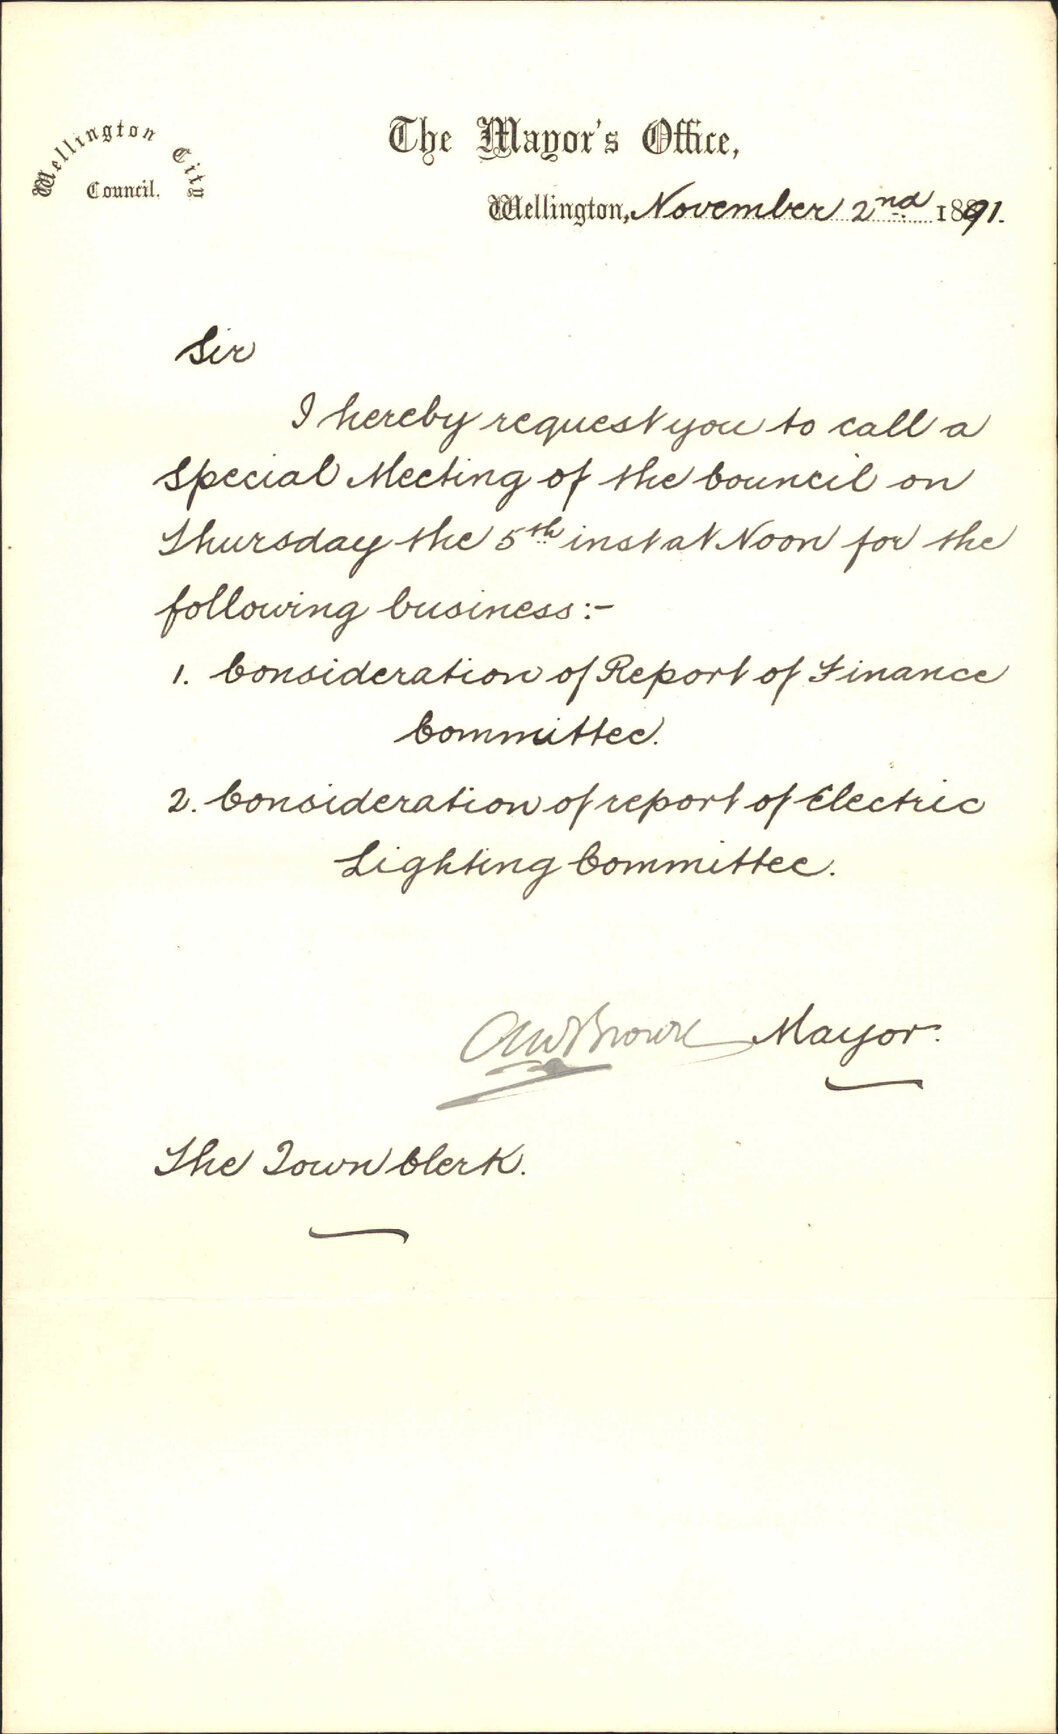 Wellington City
Council.
The Mayor's Office,
Wellington, November 2nd 1891.
Sir
I hereby request you to call a
Special Meeting of the Council on
Thursday the 5th inst at Noon for the
following business:-
1. Consideration of Report of Finance
Committee.
2. Consideration of report of Electric
Lighting Committee.
AWBrown Mayor.
The Town Clerk.